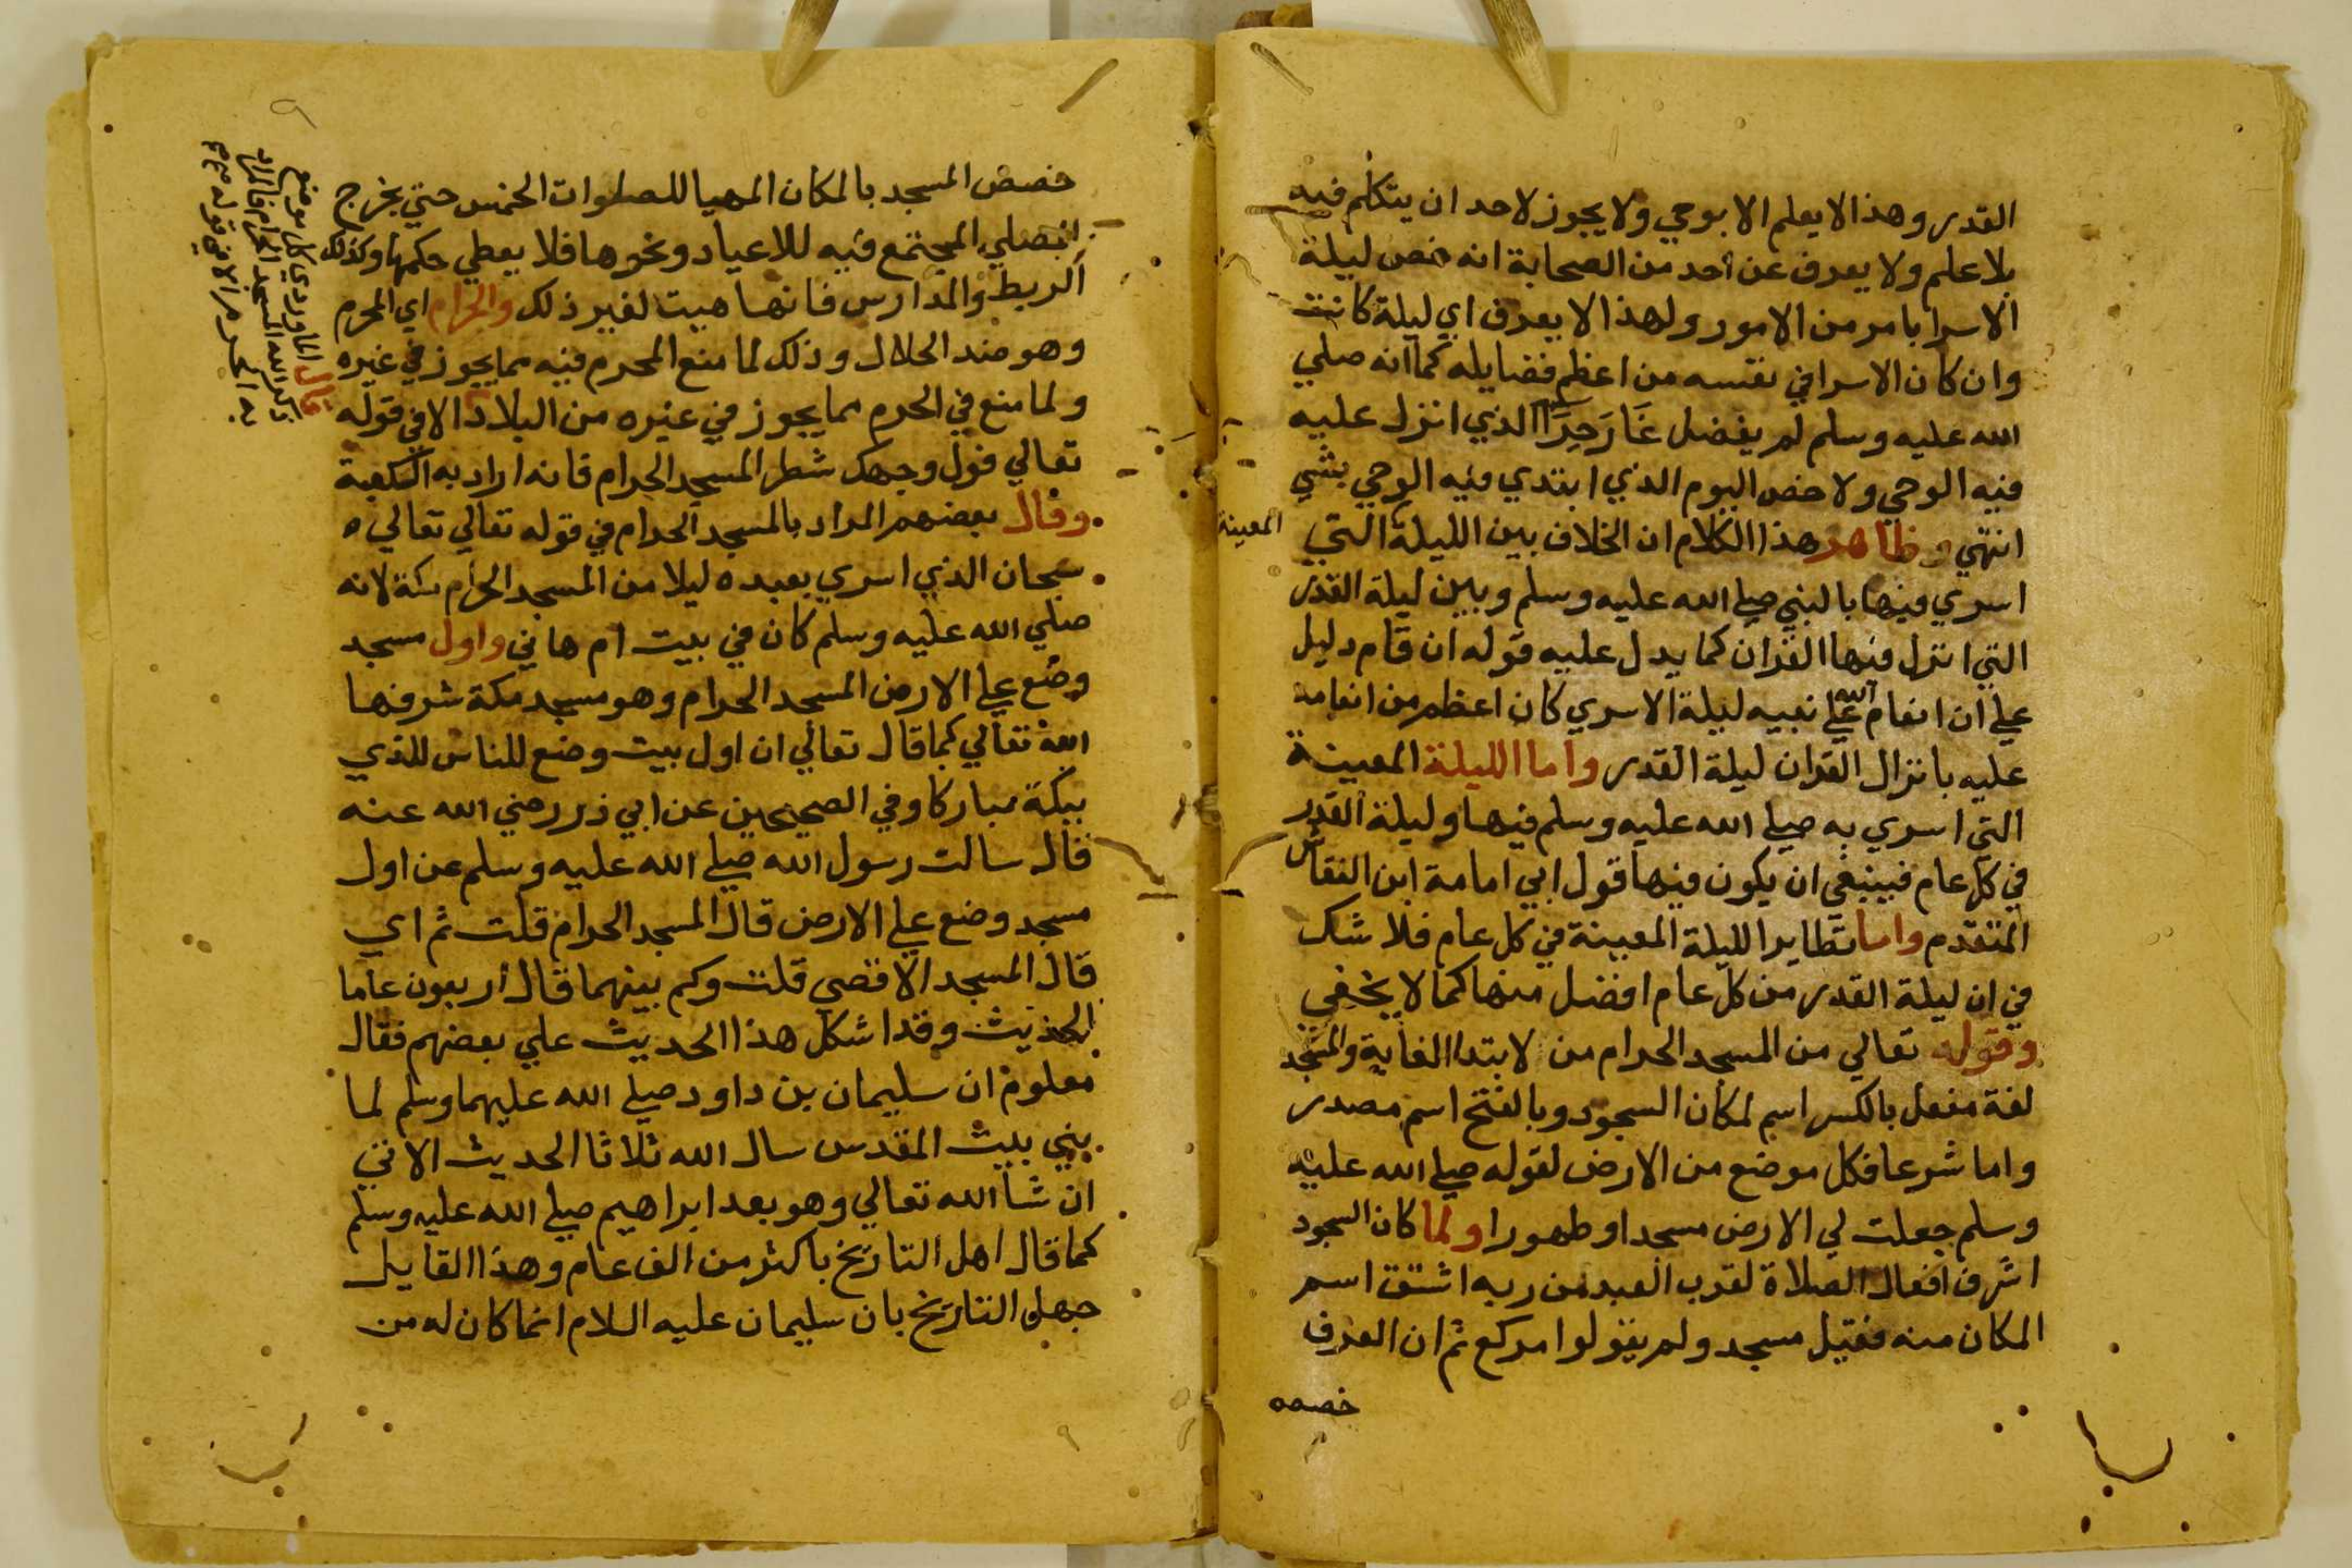 القدر وهذا لا يعلم الا بوحي ولا يجوز لاحد ان يتكلم فيه
بلا علم ولا يعرف عن احد من الصحابة انه خص ليلة
الاسرا بامر من الامور ولهذا لا يعرف اي ليلة كانت
وان كان الاسرا في نفسه من اعظم فضايله كما انه صلي
الله عليه وسلم لم يفضل غَارَ حِرَا الذي انزل عليه
فيه الوحي ولا خص اليوم الذي ابتدي فيه الوحي بشي
انتهي وظاهر هذا الكلام ان الخلاف بين الليلة التي
المعينة
اسري فيها بالنبي صلي الله عليه وسلم وبين ليلة القدر
التي انزل فيها القران كما يدل عليه قوله ان قام دليل
علي ان انعام الله علي نبيه ليلة الاسري كان اعظم من انعامه
عليه بانزال القران ليلة القدر واما الليلة المعينة
التي اسري به صلي الله عليه وسلم فيها وليلة القدر
في كل عام فينبغي ان يكون فيها قول ابي امامة ابن النقاش
المتقدم واما نظاير الليلة المعينة في كل عام فلا شك
في ان ليلة القدر من كل عام افضل منها كما لا يخفي
وقوله تعالي من المسجد الحرام من لابتدا الغاية والمسجد
لغة مفعل بالكسر اسم لمكان السجود وبالفتح اسم مصدر
واما شرعا فكل موضع من الارض لقوله صلي الله عليه
وسلم جعلت لي الارض مسجدا وطهورا ولما كان السجود
اشرف افعال الصلاة لقرب العبد من ربه اشتق اسم
المكان منه فقيل مسجد ولم يقولوا مركع ثم ان العرف
خصصه
خصص المسجد بالمكان المهيا للصلوات الخمس حتي يخرج
المصلي المجتمع فيه للاعياد ونحوها فلا يعطي حكمها وكذلك
الربط والمدارس فانها هيت لغير ذلك والحرام اي المحرم
وهو ضد الحلال وذلك لما منع المحرم فيه مما يجوز في غيره
ولما منع في الحرم مما يجوز في غيره من البلاد الا في قوله
تعالي فول وجهك شطر المسجد الحرام فانه اراد به الكعبة
وقال بعضهم المراد بالمسجد الحرام في قوله تعالي تعالي
سبحان الذي اسري بعبده ليلا من المسجد الحرام مكة لانه
صلي الله عليه وسلم كان في بيت ام هاني واول مسجد
وضع علي الارض المسجد الحرام وهو مسجد مكة شرفها
الله تعالي كما قال تعالي ان اول بيت وضع للناس للذي
ببكة مباركا وفي الصحيحين عن ابي ذر رضي الله عنه
قال سالت رسول الله صلي الله عليه وسلم عن اول
مسجد وضع علي الارض قال المسجد الحرام قلت ثم اي
قال المسجد الاقصي قلت وكم بينهما قال اربعون عاما
الحديث وقد اشكل هذا الحديث علي بعضهم فقال
معلوم ان سليمان بن داود صلي الله عليهما وسلم لما
بني بيت المقدس سال الله ثلاثا الحديث الاتي
ان شا الله تعالي وهو بعد ابراهيم صلي الله عليه وسلم
كما قال اهل التاريخ باكثر من الف عام وهذا القايل
جهل التاريخ بان سليمان عليه السلام انما كان له من
قال الماوردي كل موضع
ذكر الله المسجد الحرام فالمراد
به الحرم الا في قوله
٩